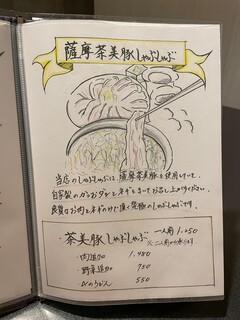 薩摩茶美豚しゃぶしゃぶ
当店のしゃぶしゃぶは、薩摩茶美豚を使用していて
自家製のかつおダシとネギとまいてお召し上がりください。
良質なお肉とネギのみで頂く究極のしゃぶしゃぶです。
・茶美豚しゃぶしゃぶ 一人前 1,250
※二人前から承ります
・肉追加 1,480
・野菜追加 750
・〆のうどん 550